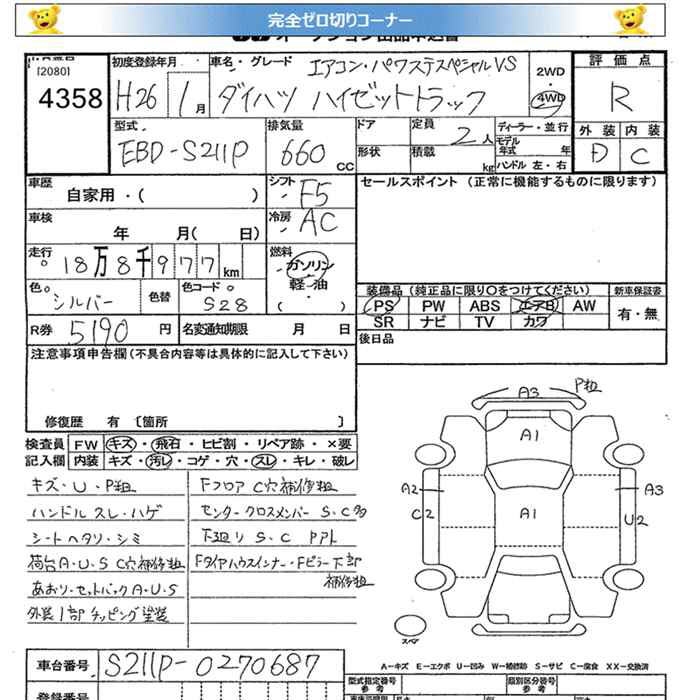 完全ゼロ切りコーナー
[2080]
4358
初度登録年月
H26 1月
車名・グレード
エアコン・パワステスペシャルVS
ダイハツ ハイゼットトラック
2WD
・
4WD
評価点
R
外装 内装
D C
型式
EBD-S211P
排気量
660 CC
ドア
形状
定員 2人
積載 kg
ディーラー・並行
モデル年式 年
ハンドル 左・右
車歴
自家用・( )
シフト F5
車検
年 月( 日)
冷房 AC
走行
18万8千977km
燃料
ガソリン
軽・油
( )
色
シルバー
色替
色コード
S28
R券 5190円
名変通知期限 月 日
セールスポイント (正常に機能するものに限ります)
装備品 (純正品に限り○をつけてください)
PS PW ABS エアB AW
SR ナビ TV カワ
新車保証書
有・無
後日品
注意事項申告欄(不具合内容等は具体的に記入して下さい)
修復歴 有 〔箇所 〕
検査員 FW キズ・飛石・ヒビ割・リペア跡・×要
記入欄 内装 キズ・汚レ・コゲ・穴・スレ・キレ・破レ
キズ・U・P粗
ハンドル スレ・ハゲ
シート ヘタリ・シミ
荷台A・U・S C穴補修粗
あおり・セットバックA・U・S
外装1部 チッピング塗装
Fフロア C穴補修粗
センタークロスメンバー S・C多
下廻り S・C
Fタイヤハウスインナー・Fピラー下部
補修粗
A3 P粗
A1
A2
C2
A1
A3
U2
スペア
A-キズ E-エクボ U-凹み W-補修跡 S-サビ C-腐食 XX-交換済
車台番号 S211P-0270687
型式指定番号
参考
類別区分番号
参考
登録番号